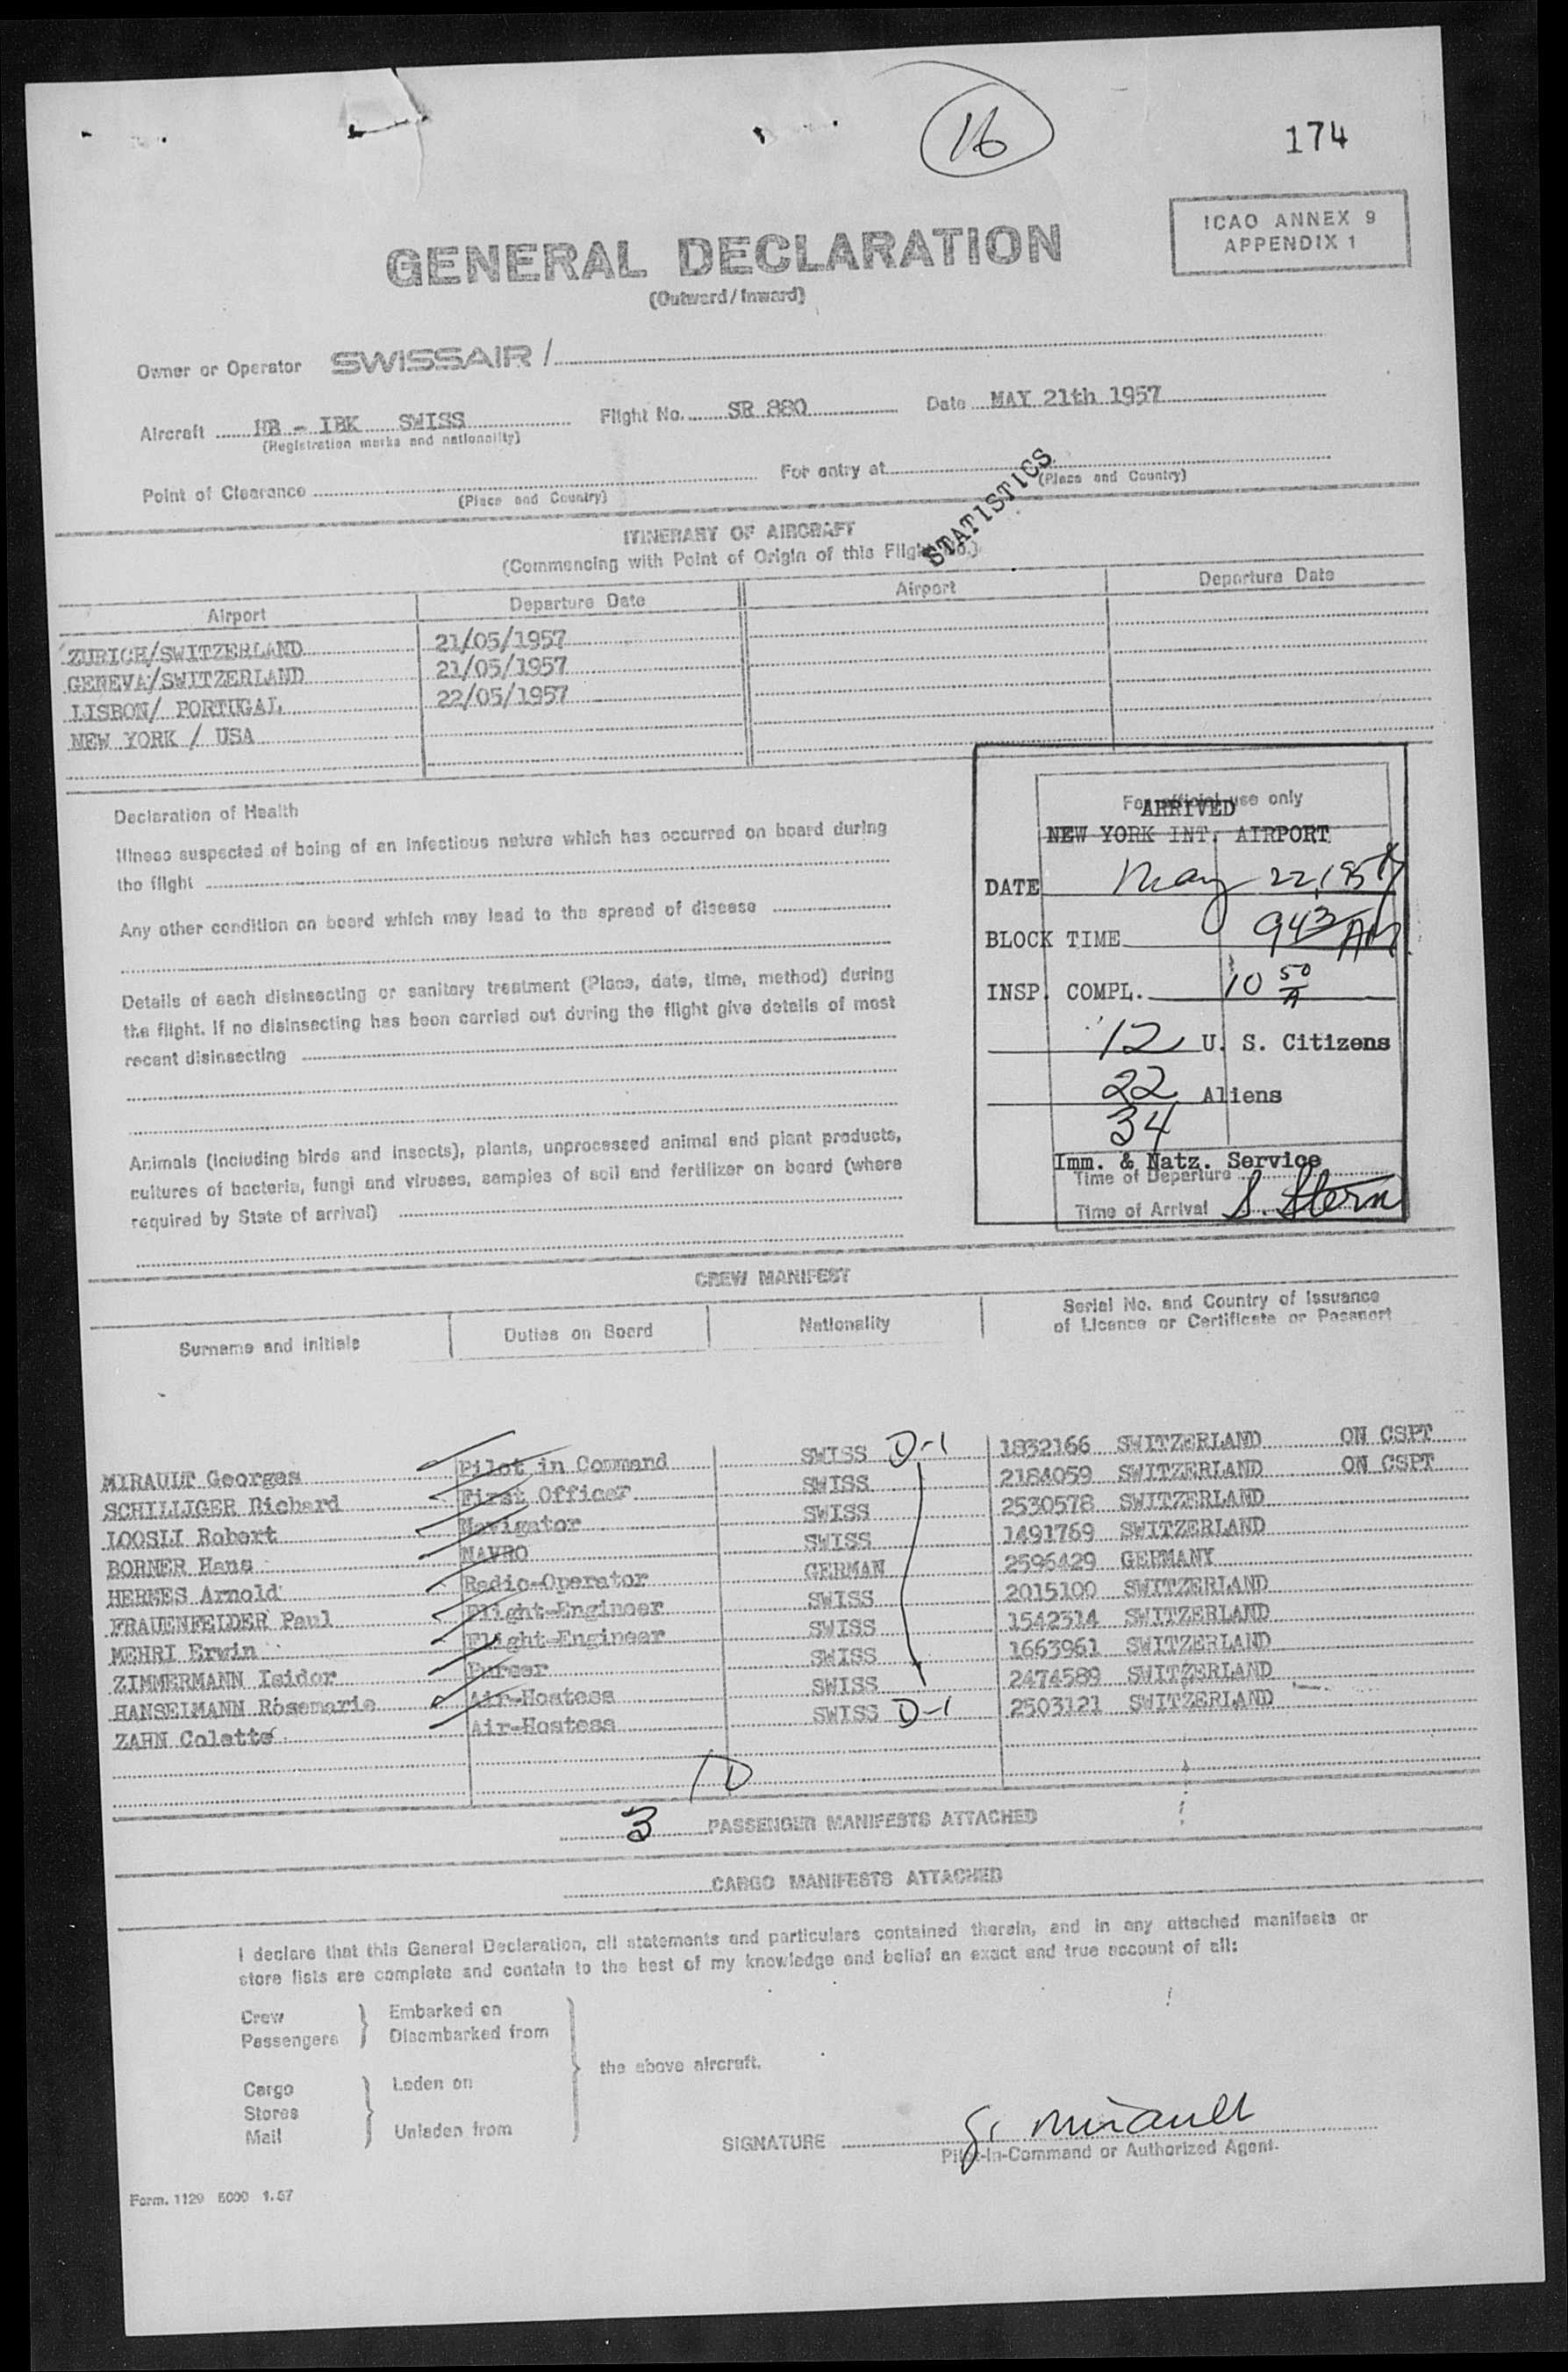 16
174
ICAO ANNEX 9
APPENDIX 1
GENERAL DECLARATION
(Outward/Inward)
Owner or Operator SWISSAIR /
Aircraft HB - IBK SWISS Flight No. SR 880 Date MAY 21th 1957
(Registration marks and nationality)
Point of Clearance For entry at
(Place and Country) (Place and Country)
STATISTICS
ITINERARY OF AIRCRAFT
(Commencing with Point of Origin of this Flight No.)
Airport Departure Date Airport Departure Date
ZURICH/SWITZERLAND 21/05/1957
GENEVA/SWITZERLAND 21/05/1957
LISBON/ PORTUGAL 22/05/1957
NEW YORK / USA
Declaration of Health
Illness suspected of being of an infectious nature which has occurred on board during
the flight
Any other condition on board which may lead to the spread of disease
Details of each disinsecting or sanitary treatment (Place, date, time, method) during
the flight. If no disinsecting has been carried out during the flight give details of most
recent disinsecting
Animals (including birds and insects), plants, unprocessed animal and plant products,
cultures of bacteria, fungi and viruses, samples of soil and fertilizer on board (where
required by State of arrival)
For official use only
ARRIVED
NEW YORK INT. AIRPORT
DATE May 22, 1957
BLOCK TIME 943 AM
INSP. COMPL. 10 50 A
12 U. S. Citizens
22 Aliens
34
Imm. & Natz. Service
Time of Departure
Time of Arrival S. Stern
CREW MANIFEST
Surname and initials Duties on Board Nationality Serial No. and Country of Issuance
of Licence or Certificate or Passport
MIRAULT Georges Pilot in Command SWISS D-1 1832166 SWITZERLAND ON CSPT
SCHILLIGER Richard First Officer SWISS 2184059 SWITZERLAND ON CSPT
LOOSLI Robert Navigator SWISS 2530578 SWITZERLAND
BORNER Hans NAVRO SWISS 1491769 SWITZERLAND
HERMES Arnold Radio-Operator GERMAN 2596429 GERMANY
FRAUENFELDER Paul Flight-Engineer SWISS 2015100 SWITZERLAND
MEHRI Erwin Flight-Engineer SWISS 1542314 SWITZERLAND
ZIMMERMANN Isidor Purser SWISS 1663961 SWITZERLAND
HANSELMANN Rosemarie Air-Hostess SWISS 2474589 SWITZERLAND
ZAHN Colette Air-Hostess SWISS D-1 2503121 SWITZERLAND
10
3 PASSENGER MANIFESTS ATTACHED
CARGO MANIFESTS ATTACHED
I declare that this General Declaration, all statements and particulars contained therein, and in any attached manifests or
store lists are complete and contain to the best of my knowledge and belief an exact and true account of all:
Crew Embarked on
Passengers Disembarked from
the above aircraft.
Cargo Laden on
Stores
Mail Unladen from
SIGNATURE G. Mirault
Pilot-in-Command or Authorized Agent.
Form. 1129 5000 1.57